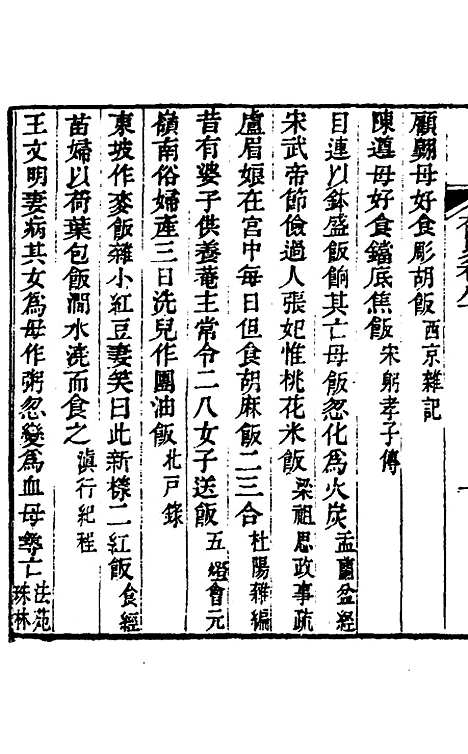 顧翺母好食彫胡飯西京雜記
陳遵母好食鐺底焦飯宋躬孝子傳
目連以鉢盛飯餉其亡母飯忽化爲火炭盂蘭盆經
宋武帝節儉過人張妃惟桃花米飯梁祖思政事疏
盧眉娘在宫中每日但食胡麻飯二三合杜陽雜編
昔有婆子供養菴主常令二八女子送飯五燈會元
嶺南俗婦產三日洗兒作團油飯北戸錄
東坡作麥飯雜小紅豆妻笑曰此新樣二紅飯食經
苗婦以荷葉包飯澗水澆而食之滇行紀程
王文明妻病其女爲母作粥忽變爲血母尋亡法苑珠林